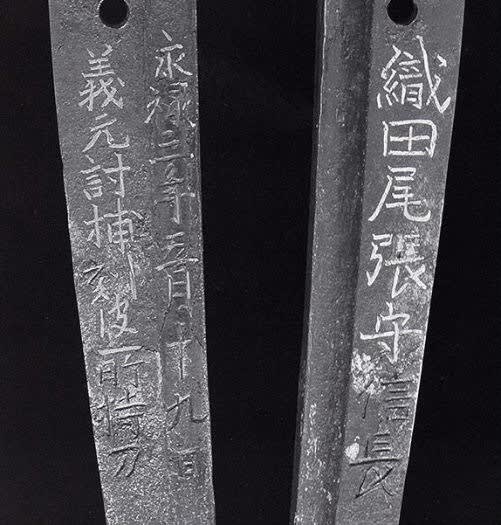 永禄三年五月十九日
義元討捕刻彼所持刀
織田尾張守信長